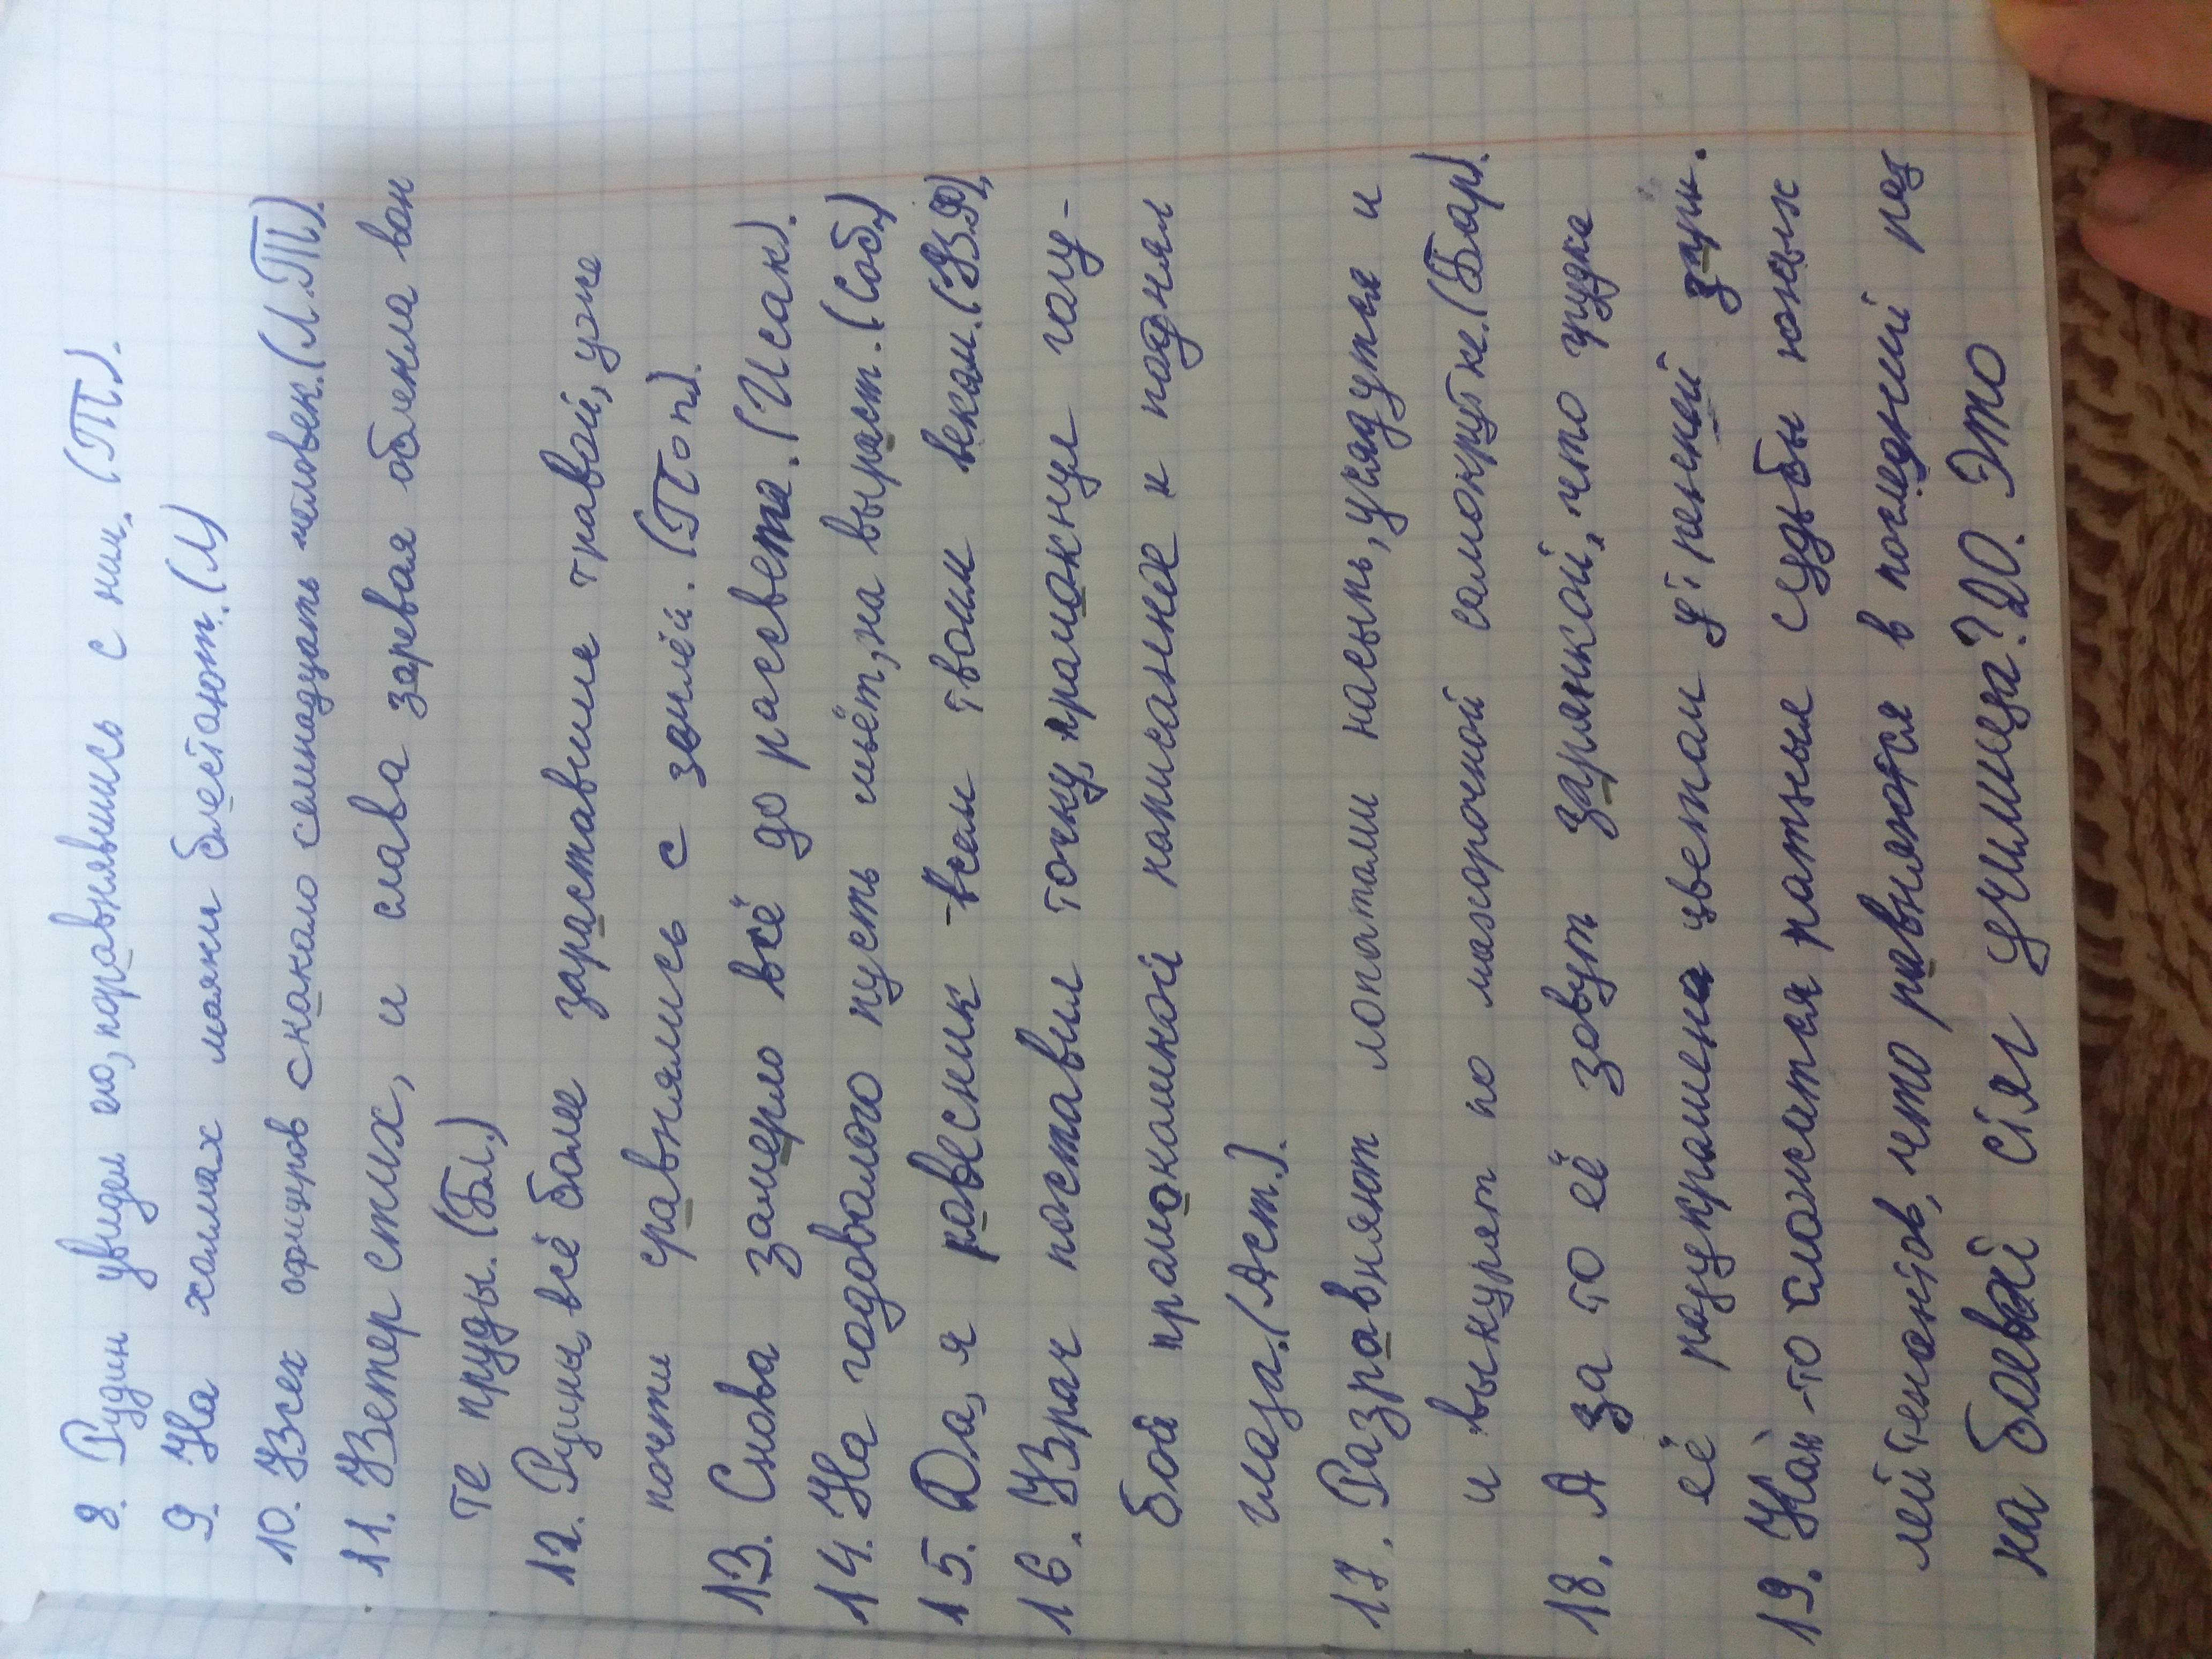 8. Рудин увидел его, поравнявшись с ним. (Т).
9. На холмах маяки блестают. (Л)
10. Всех офицеров скакало семнадцать человек. (Л.Т).
11. Ветер стих, и слава заревая облекла вон
те пруды. (Бл.)
12. Руины, всё более зараставшие травой, уже
почти сравнялись с землёй. (Поп).
13. Снова замерло всё до рассвета. (Исак).
14. На годовалого пусть шьёт, на выраст. (Соб.)
15. Да, я ровесник всем твоим векам. (В.Ф).
16. Врач поставил точку, промокнул голу-
бой промокашкой написанное и поднял
глаза. (Аст.).
17. Разравняют лопатами насыпь, усядутся и
и выкурят по махорочной самокрутке. (Бар).
18. А за то её зовут зарянкой, что грудка
её разукрашена цветом утренней зари.
19. Как-то сложатся ратные судьбы юных
лейтенантов, что равняются в последний раз
на боевой стяг училища? 20. Это